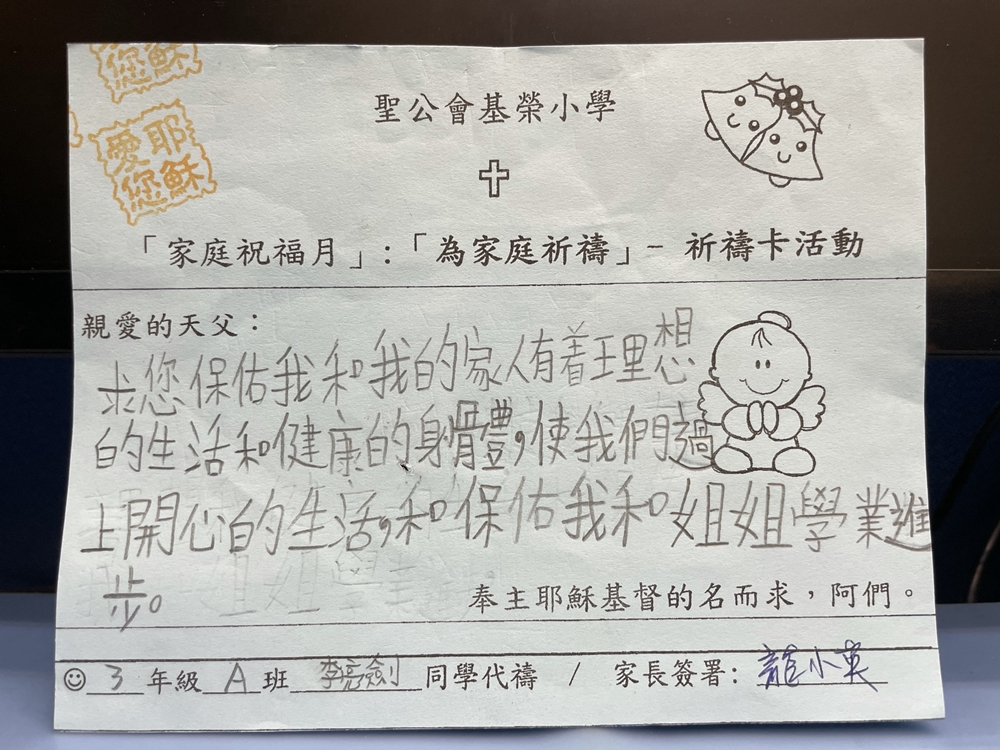 您穌
愛耶
您穌
聖公會基榮小學
「家庭祝福月」:「為家庭祈禱」- 祈禱卡活動
親愛的天父:
求您保佑我和我的家人有着理想
的生活和健康的身體,使我們過
上開心的生活,和保佑我和姐姐學業進
步。
奉主耶穌基督的名而求,阿們。
3年級A班李亮劍同學代禱 / 家長簽署:龍小英